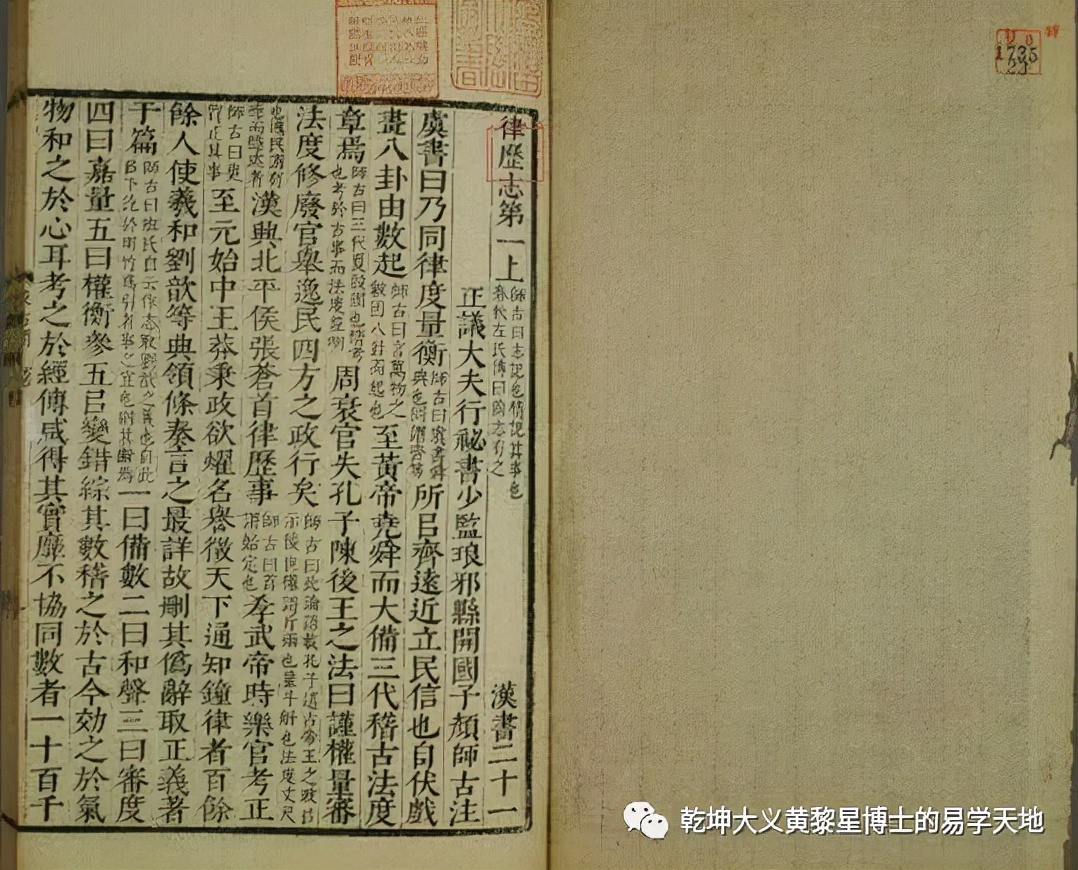 律歷志第一上 師古曰志記也積記其事也春秋左氏傳曰前志有之 漢書二十一
正議大夫行祕書少監琅邪縣開國子顏師古注
虞書曰乃同律度量衡 師古曰虞書舜典也同謂齊等 所㠯齊遠近立民信也自伏戲
畫八卦由數起 師古曰言萬物之數因八卦而起也 至黃帝堯舜而大備三代稽古法度
章焉 師古曰三代夏殷周也稽考也考於古事而法度益明 周衰官失孔子陳後王之法曰謹權量審
法度修廢官舉逸民四方之政行矣 師古曰此論語載孔子述古帝王之政以示後 權謂斤兩也量斗斛也法度丈尺
也逸民 漢興北平侯張蒼首律歷事 師古曰首謂始定也 孝武帝時樂官考正
師古曰更質正其事 至元始中王莽秉政欲燿名譽徵天下通知鐘律者百餘
餘人使羲和劉歆等典領條奏言之最詳故刪其偽辭取正義著
于篇 師古曰班氏自云作志取劉歆之義也自此以下訖於用竹為引者事之宜也則其辭焉 一曰備數二曰和聲三曰審度
四曰嘉量五曰權衡參五㠯變錯綜其數稽之於古今効之於氣
物和之於心耳考之於經傳咸得其實靡不協同數者一十百千
乾坤大义黄黎星博士的易学天地